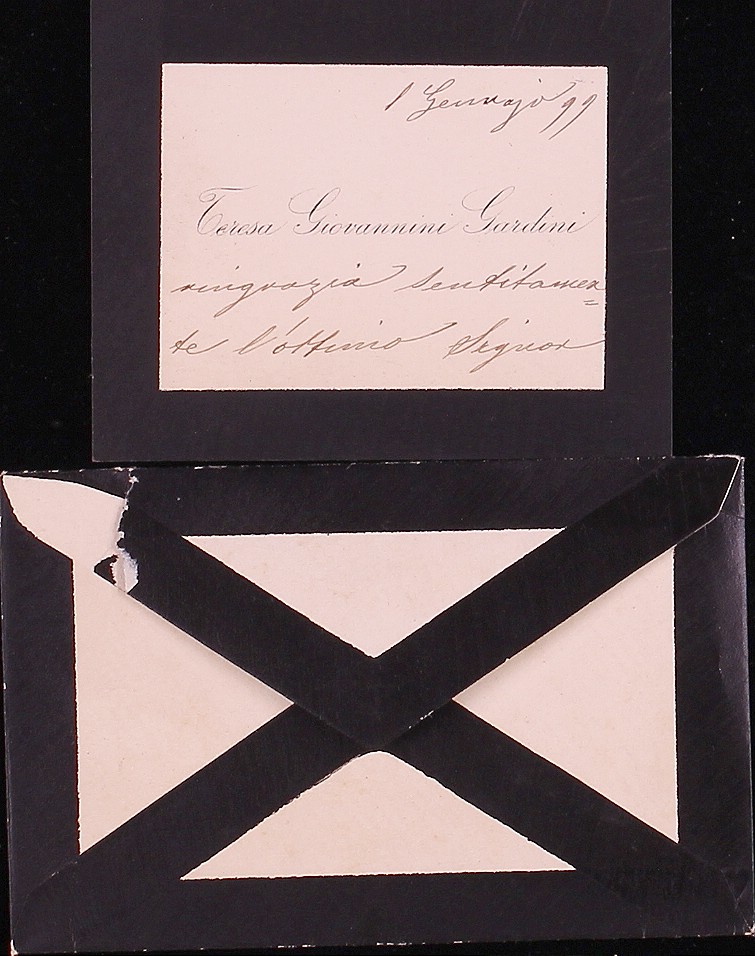 1 Gennajo 99
Teresa Giovannini Gardini
ringrazia sentitamen=
te l'ottimo Signor